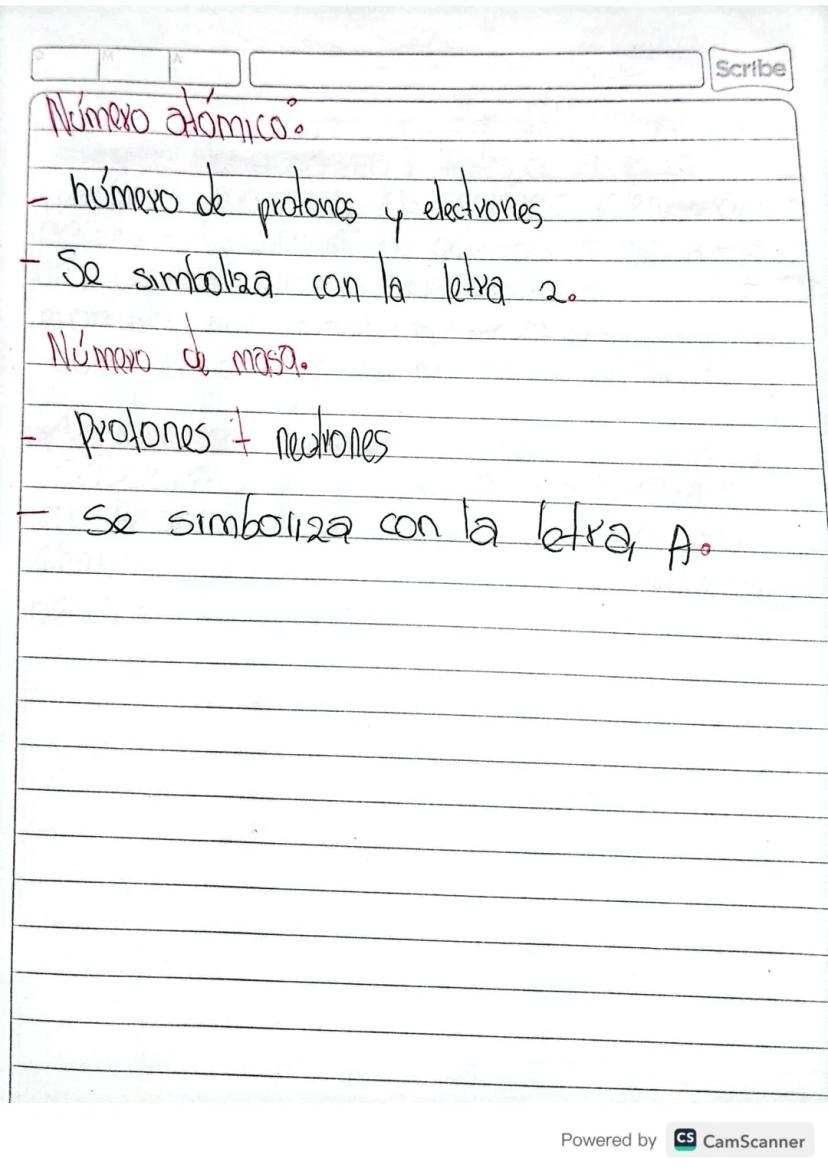 D M A Scribe
Número atómico:
- número de protones y electrones
- Se simboliza con la letra z.
Número de masa.
- protones + neutrones
- se simboliza con la letra A.
Powered by CS CamScanner